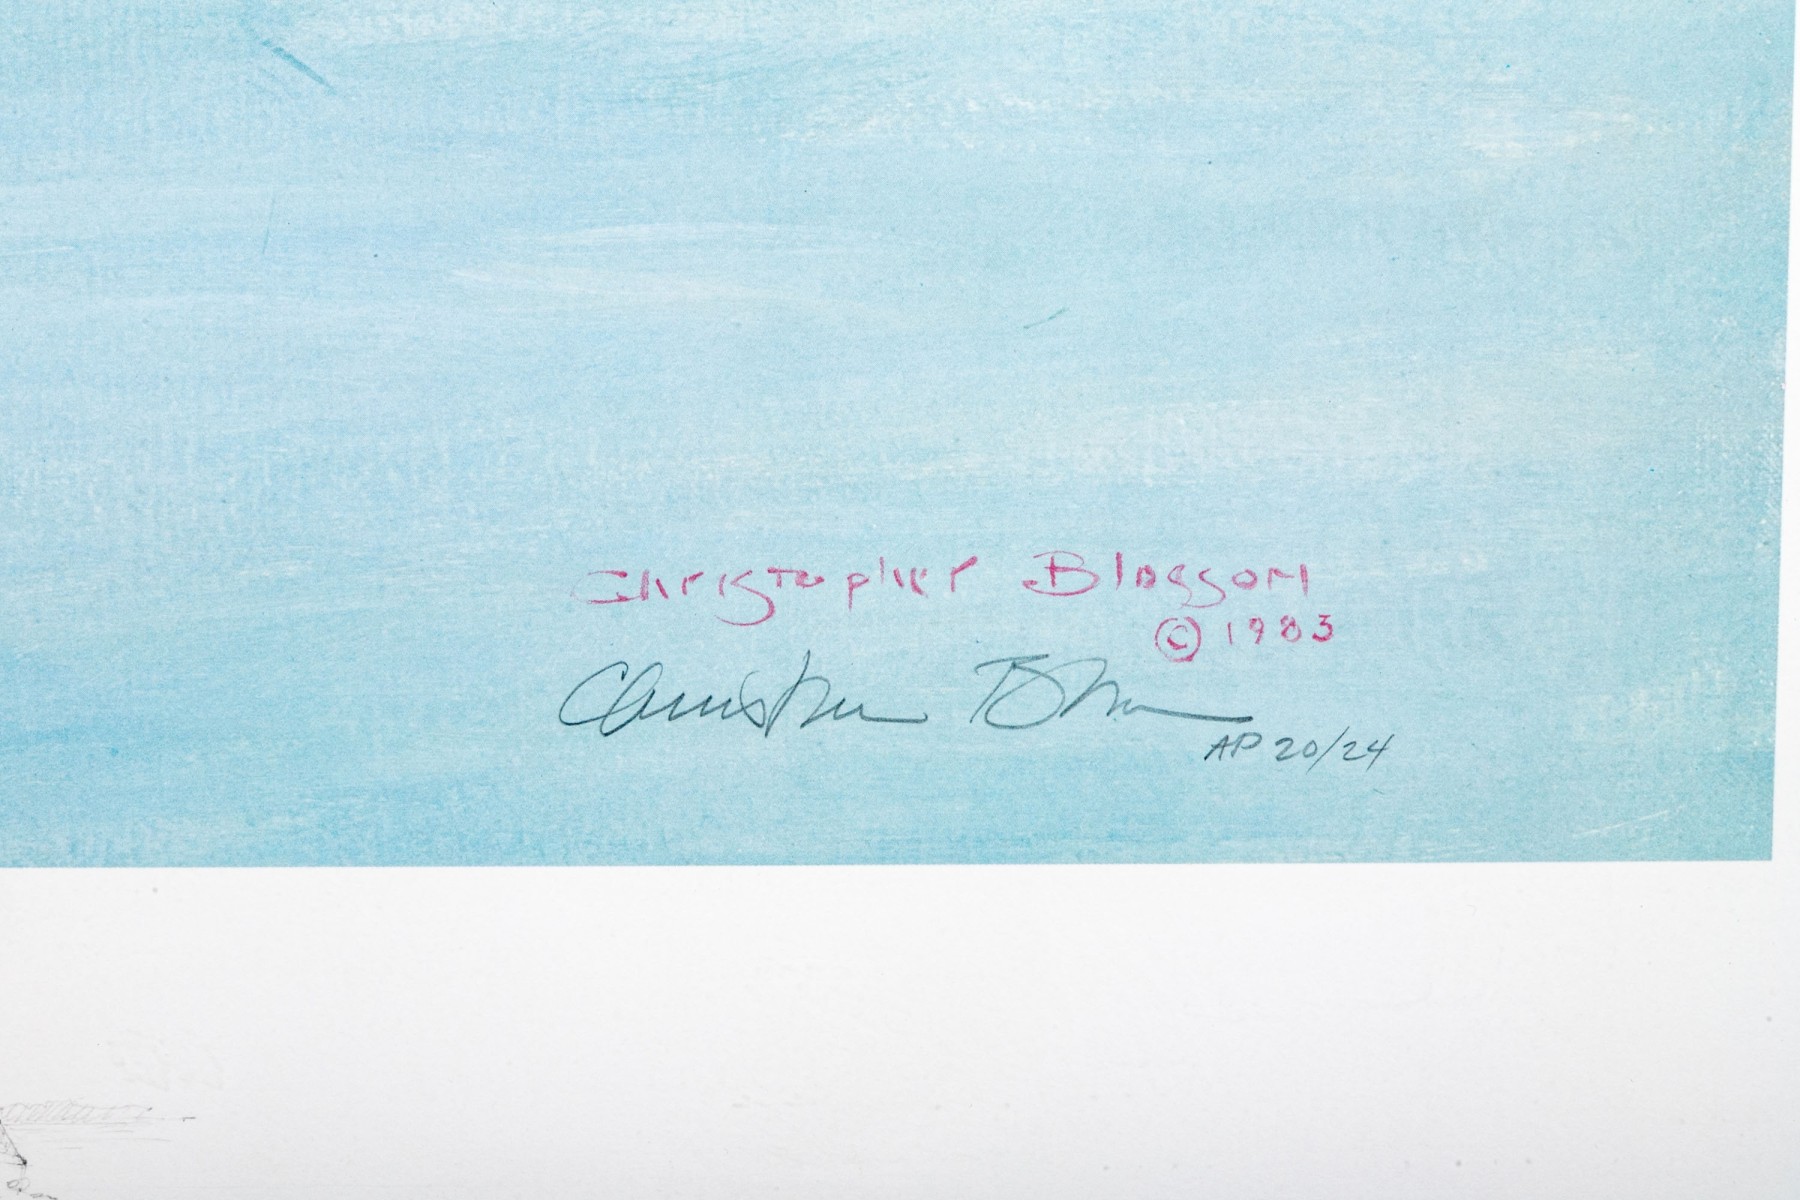 Christopher Blossom
© 1983
Christopher Blossom
AP 20/24